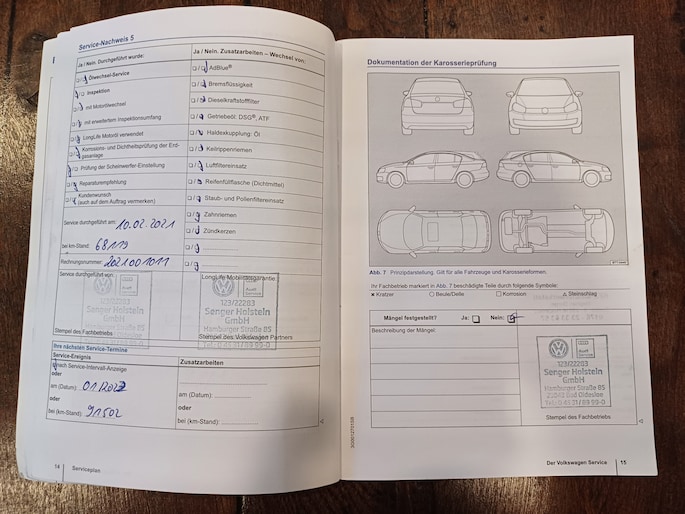 Service-Nachweis 5
Ja / Nein. Durchgeführt wurde:
Ölwechsel-Service
Inspektion
mit Motorölwechsel
mit erweitertem Inspektionsumfang
LongLife Motoröl verwendet
Korrosions- und Dichtheitprüfung der Erd-
gasanlage
Prüfung der Scheinwerfer-Einstellung
Reparaturempfehlung
Kundenwunsch
(auch auf dem Auftrag vermerken)
Service durchgeführt am: 10.02.2021
bei km-Stand: 68119
Rechnungsnummer: 2021001011
Service durchgeführt von
123/22283
Senger Holstein
GmbH
Hamburger Straße 85
Stempel des Fachbetriebs
Ja / Nein. Zusatzarbeiten – Wechsel von:
AdBlue®
Bremsflüssigkeit
Dieselkraftstofffilter
Getriebeöl: DSG®, ATF
Haldexkupplung: Öl
Keilrippenriemen
Luftfiltereinsatz
Reifenfüllflasche (Dichtmittel)
Staub- und Pollenfiltereinsatz
Zahnriemen
Zündkerzen
LongLife Mobilitätsgarantie:
123/22283
Senger Holstein
GmbH
Hamburger Straße 85
Stempel des Volkswagen Partners
Ihre nächsten Service-Termine
Service-Ereignis
nach Service-Intervall-Anzeige
oder
am (Datum):
oder
bei (km-Stand): 91502
Zusatzarbeiten
am (Datum):
oder
bei (km-Stand):
14 Serviceplan
Dokumentation der Karosserieprüfung
Abb. 7 Prinzipdarstellung. Gilt für alle Fahrzeuge und Karosserieformen.
Ihr Fachbetrieb markiert in Abb. 7 beschädigte Teile durch folgende Symbole:
× Kratzer ○ Beule/Delle □ Korrosion △ Steinschlag
Mängel festgestellt? Ja: Nein:
Beschreibung der Mängel:
123/22283
Senger Holstein
GmbH
Hamburger Straße 85
23843 Bad Oldesloe
Stempel des Fachbetriebs
Der Volkswagen Service 15